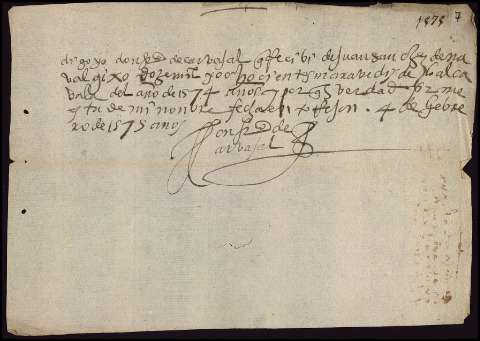 1575 7
digo yo don fer.do de carvajal q Recibi de juan sanchez de na
valgixo doze mill y ochocientos maravedis de la alca
vala del año de 1574 años y por q es verdad firme
esta de mi nonbre fecha en 4 de hebre
ro de 1575 años
don fer.do de
carvajal